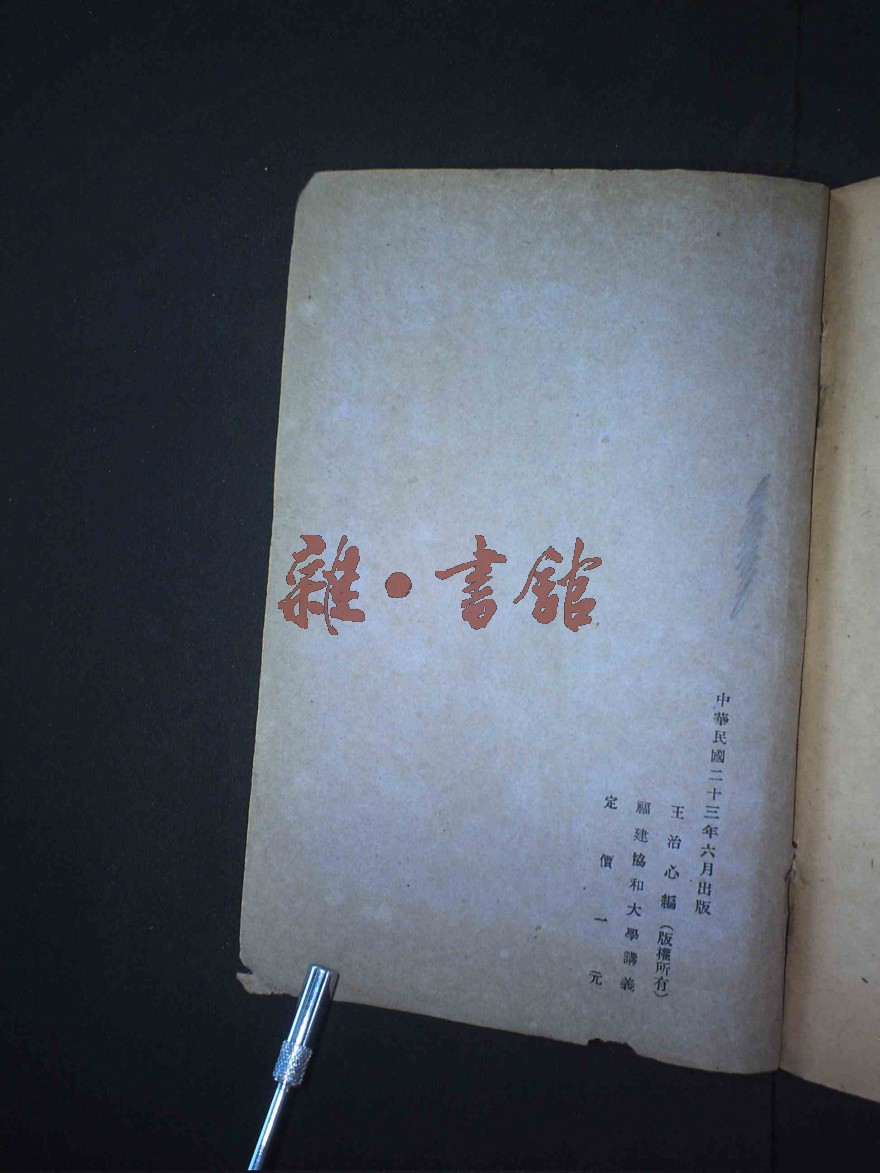 中華民國二十三年六月出版
王治心編（版權所有）
福建協和大學講義
定價一元
雜·書館